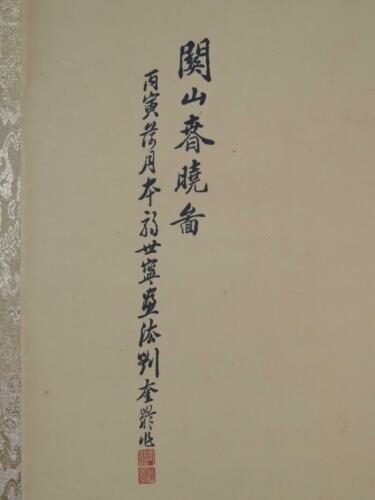 關山春曉圖
丙寅荷月本郎世寧畫法劉奎齡作